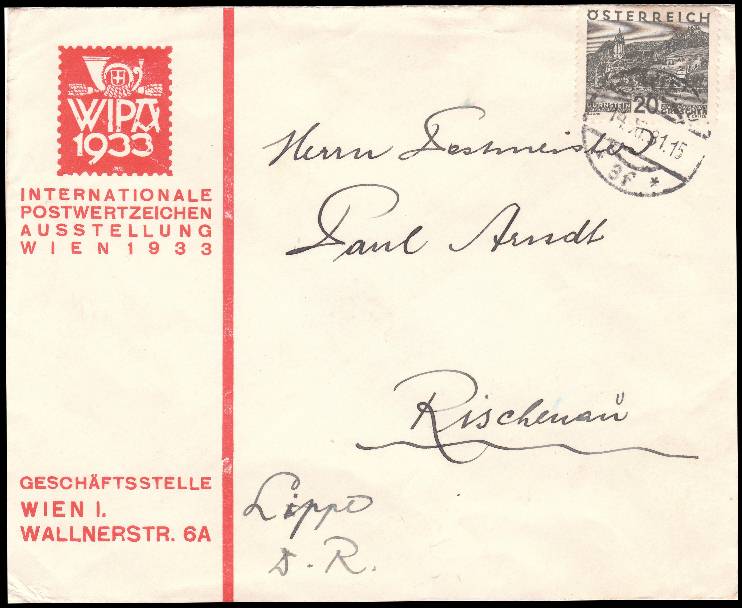 WIPA
1933
INTERNATIONALE
POSTWERTZEICHEN
AUSSTELLUNG
WIEN 1933
GESCHÄFTSSTELLE
WIEN I.
WALLNERSTR. 6A
ÖSTERREICH
20
Herrn
Paul Arndt
Rischenau
Lippe
D.-R.